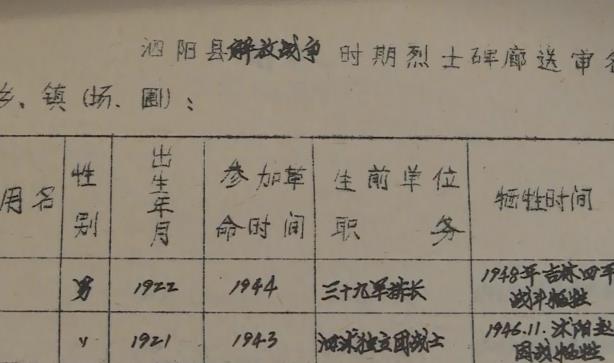 泗阳县解放战争时期烈士碑廊送审名
乡、镇(场、圃):
用名 性别 出生年月 参加革命时间 生前单位职务 牺牲时间
男 1922 1944 三十九军排长 1948年吉林四平战斗牺牲
〃 1921 1943 泗沭独立团战士 1946.11.沭阳 战牺牲